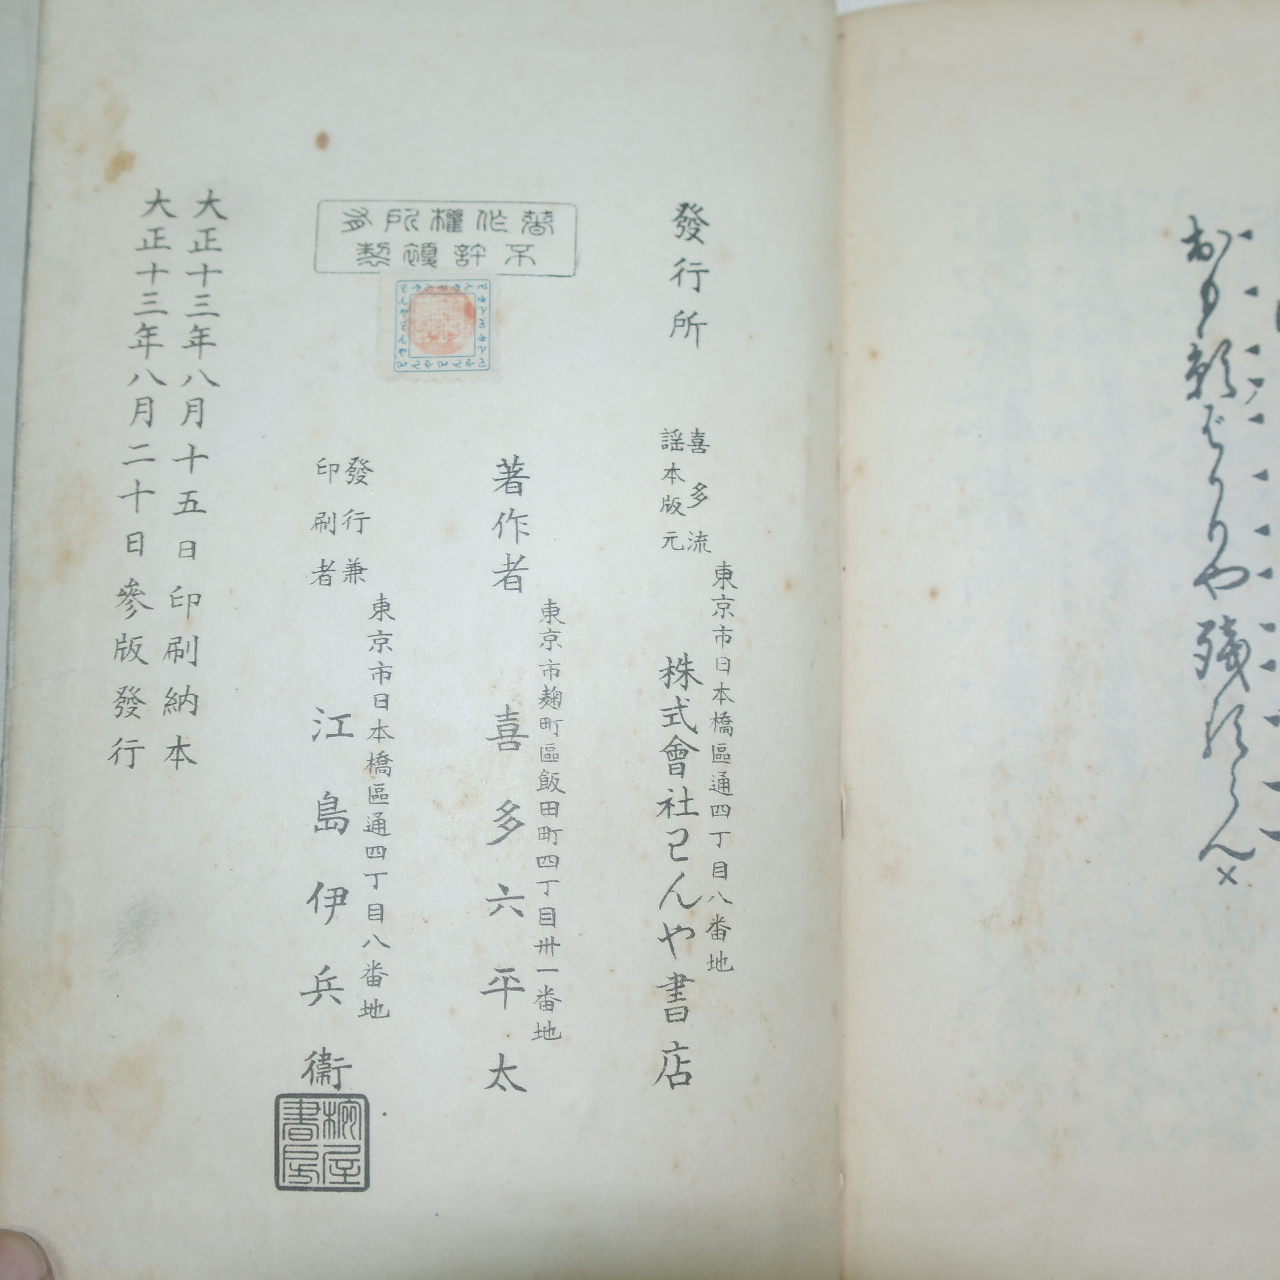 おも影ばかりや残るらん
發行所
喜多流
謡本版元
東京市日本橋區通四丁目八番地
株式會社わんや書店
著作者
東京市麹町區飯田町四丁目卅一番地
喜多六平太
著作權所有
不許複製
發行兼
印刷者
東京市日本橋區通四丁目八番地
江島伊兵衞
椀屋
書房
大正十三年八月十五日印刷納本
大正十三年八月二十日參版發行